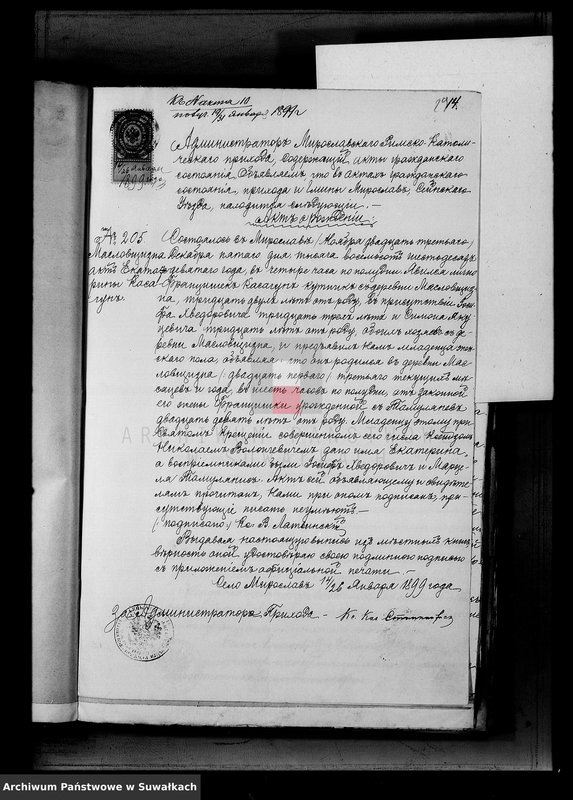 Къ № акта 10.
января 1899 г
194.
Администраторъ Мирославскаго Римско-Католи-
ческаго прихода, содержащій акты гражданскаго
состоянія объявляетъ, что въ актахъ гражданскаго
состоянія, прихода и гмины Мирославъ, Сейнскаго
Уѣзда, находится слѣдующій. —
Актъ о рожденіи:
14/26 Января
1899 года
№ 205
Масловщизна
актъ Екате-
рины Каса-
гунъ
Состоялось въ Мирославѣ /Ноября двадцать третьяго/
Декабря пятаго дня тысяча восемьсотъ шестьдесятъ
девятаго года, въ четыре часа по полудни. Явился лично
Францишекъ Касагунъ купникъ съ деревни Масловщиз-
на, тридцать двухъ лѣтъ отъ роду, въ присутствіи Іоси-
фа Хведоровича тридцать трехъ лѣтъ и Симона Яку-
цевича тридцать лѣтъ отъ роду, обоихъ въ де-
ревни Масловщизна, и предъявилъ намъ младенца жен-
скаго пола, объявляя, что онъ родился въ деревни Мас-
ловщизна /двадцать перваго/ третьяго текущихъ мѣ-
сяцевъ и года, въ шесть часовъ по полудни, отъ законной
его жены Францишки урожденной съ Томулянцевъ
двадцать девять лѣтъ отъ роду. Младенцу этому при
святомъ крещеніи совершенномъ сего числа Ксендзомъ
Николаемъ дано имя Екатерина,
а воспріемниками были Іосифъ Хведоровичъ и Марце-
ла Актъ сей объявляющему и свидѣте-
лямъ прочитанъ, Нами при ономъ подписанъ, при-
сутствующіе писать неумѣютъ —
/:подписано:/ Кс. В. Латвинскій
Выдавая настоящую выпись изъ мѣстныхъ книгъ
вѣрность оной удостовѣряю своею подлинною подписью
съ приложеніемъ оффиціальной печати. —
Село Мирославъ 14/26 Января 1899 года
За Администратора Прихода — Кс. Каз.
Archiwum Państwowe w Suwałkach